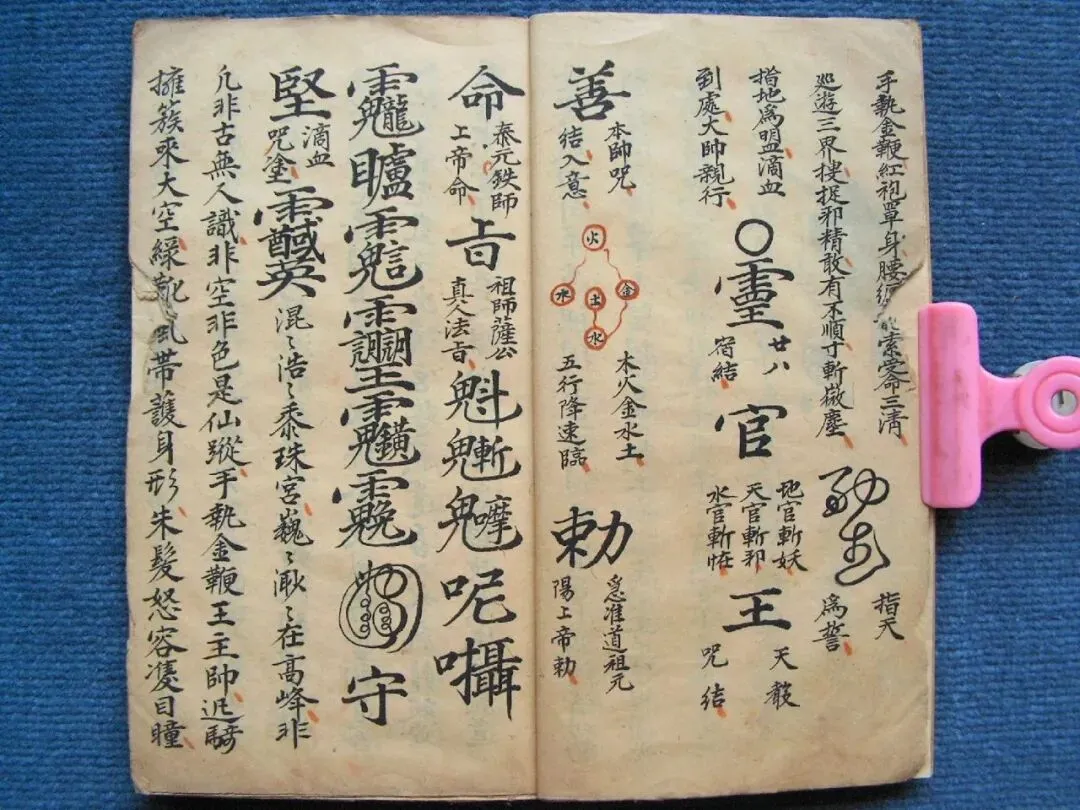 手執金鞭紅袍單身腰索受命三清
巡遊三界搜捉邪精敢有不順寸斬微塵
指天
為誓
指地為盟滴血
到處大帥親行
○靈
廿八
宿結
官
地官斬妖
天官斬邪
水官斬怪
王
天
咒結
善
本帥咒
結入意
火
木 土 金
水
木火金水土
五行降速臨
勅
急准道祖元
陽上帝勅
命
泰元鉄師
上帝命
旨
祖師薩公
真人法旨
魁
呢
守
堅
滴血
咒塗
混〻浩〻黍珠宮巍〻漱〻在高峰非
凡非古無人識非空非色是仙蹤手執金鞭王主帥迅騎
擁簇來大空綠靴風帶護身形朱髮怒容隻目瞳